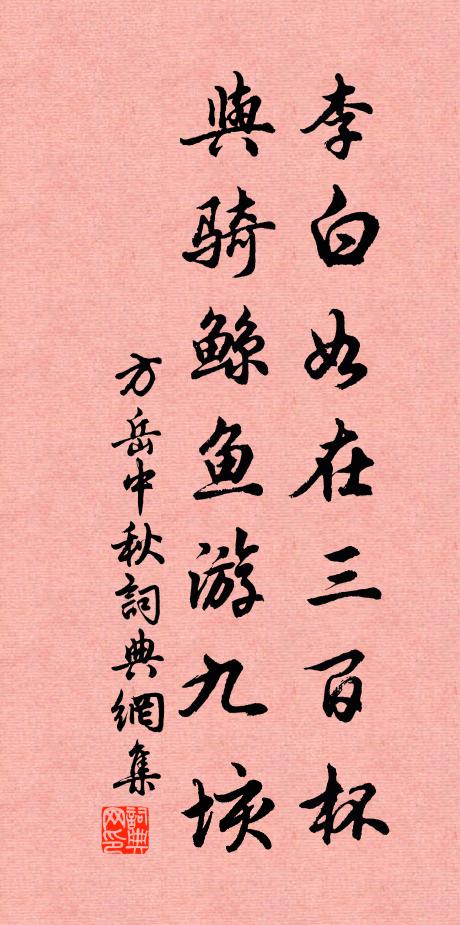 李白如在三百杯
與騎鲸鱼游九垓
方岳中秋詞典網集
詞典网印